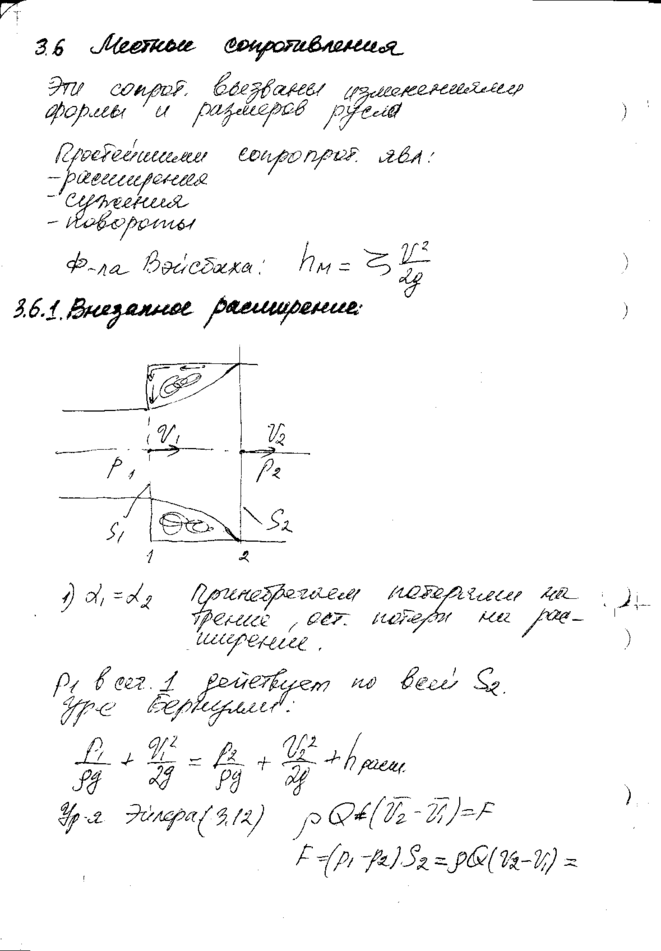 3.6 Местные сопротивления
Эти сопрот. вызваны изменениями
формы и размеров русла
Простейшими сопропрот. явл:
- расширения
- сужения
- повороты
Ф-ла Вэйсбаха: hм = ζ V²/2g
3.6.1. Внезапное расширение:
V₁ V₂
P₁ P₂
S₁ S₂
1 2
1) α₁ = α₂ Принебрегаем потерями на
трение, ост. потери на рас-
ширение.
P₁ в сеч. 1 действует по всей S₂.
Ур-е Бернулли:
P₁/ρg + V₁²/2g = P₂/ρg + V₂²/2g + h расш.
Ур-я Эйлера (3.12) ρQ(V̄₂ - V̄₁) = F
F = (p₁ - p₂) S₂ = ρQ(V₂ - V₁) =